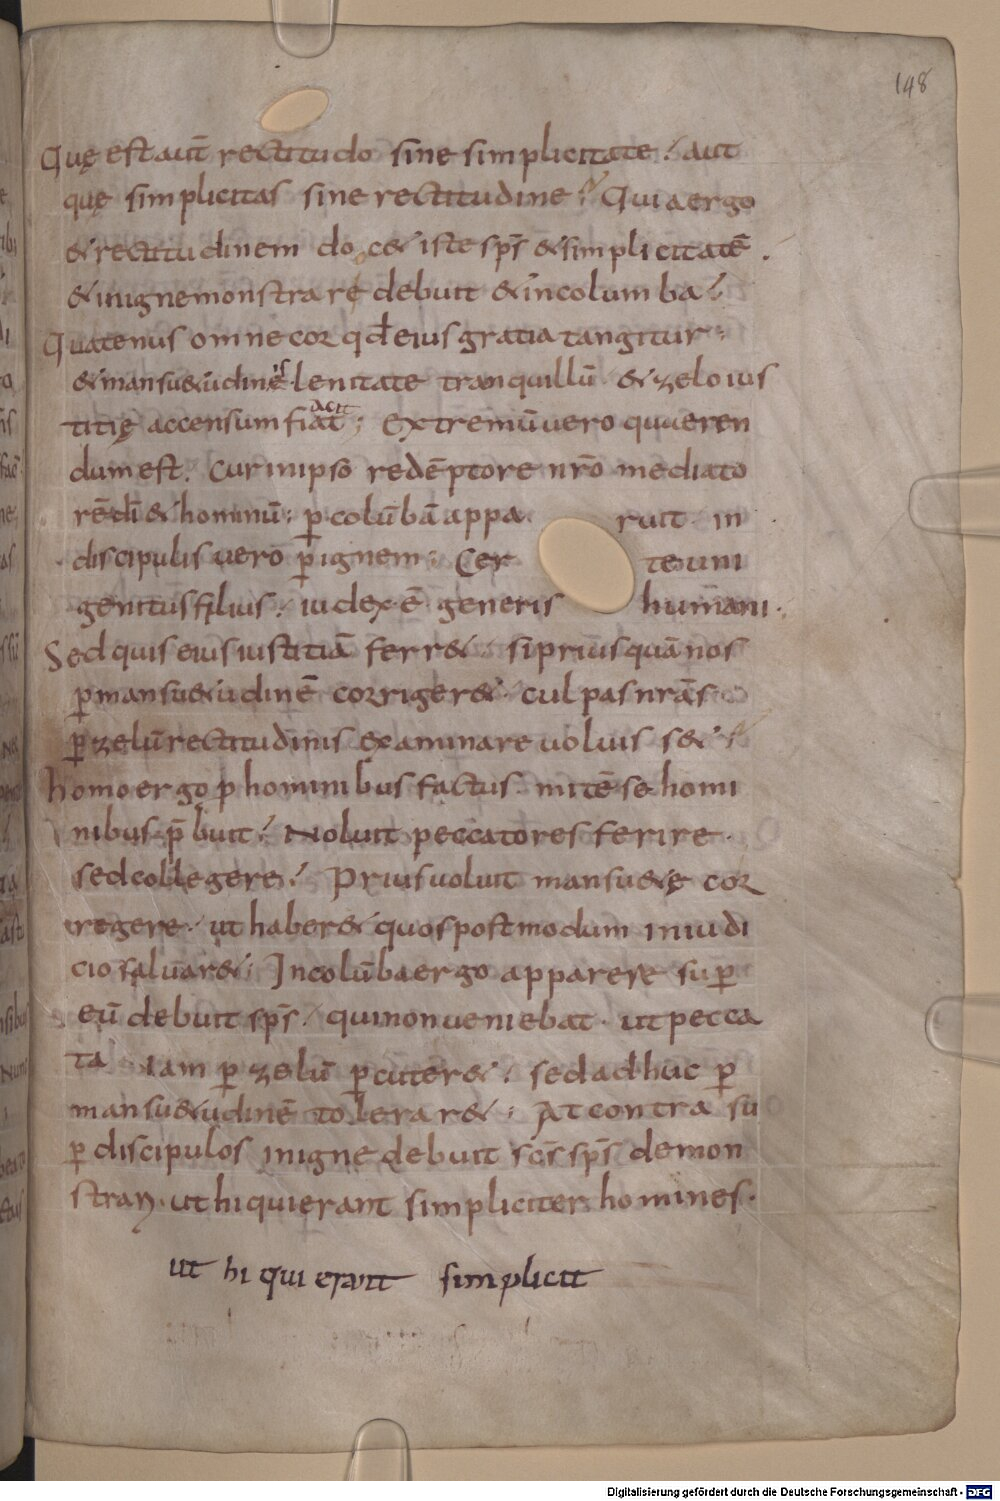 148
Quę est aut̄ rectitudo sine simplicitate. aut
quę simplicitas sine rectitudine? Quia ergo
& rectitudinem doc& iste sp̄s & simplicitatē.
& in igne monstrare debuit & in columba.
Quatenus omne cor qd̄ eius gratia tangitur.
& mansu&udinis lenitate tranquillū & zelo ius
titię accensum fiat; Extremū vero quęren
dum est. Cur in ipso redēptore nr̄o mediato
rē dī & hominū. p̱ colūbā appa ruit in
discipulis vero p̱ ignem. Cer te uni
genitus filius. iudex ē generis humani.
Sed quis eius iustitiā ferr&. si priusquā nos
p̱ mansu&udinē corriger&. culpas nr̄as
p̱ zelū rectitudinis examinare voluiss&.
homo ergo p hominibus factus. mitē se homi
nibus p̄buit. Noluit peccatores ferire.
sed collegere. Prius voluit mansu&ę cor
regere. ut haber& quos postmodum in iudi
cio saluar&. In colūba ergo apparere sup̱
eū debuit sp̄s. qui non veniebat. ut pecca
ta iam p̱ zelū p̱cuter&. sed adhuc p̱
mansu&udinē tolerar&. At contra su
p̱ discipulos in igne debuit sc̄s sp̄s demon
strari. ut hi qui erant simpliciter homines.
ut hi qui erant simplicit
Digitalisierung gefördert durch die Deutsche Forschungsgemeinschaft - DFG